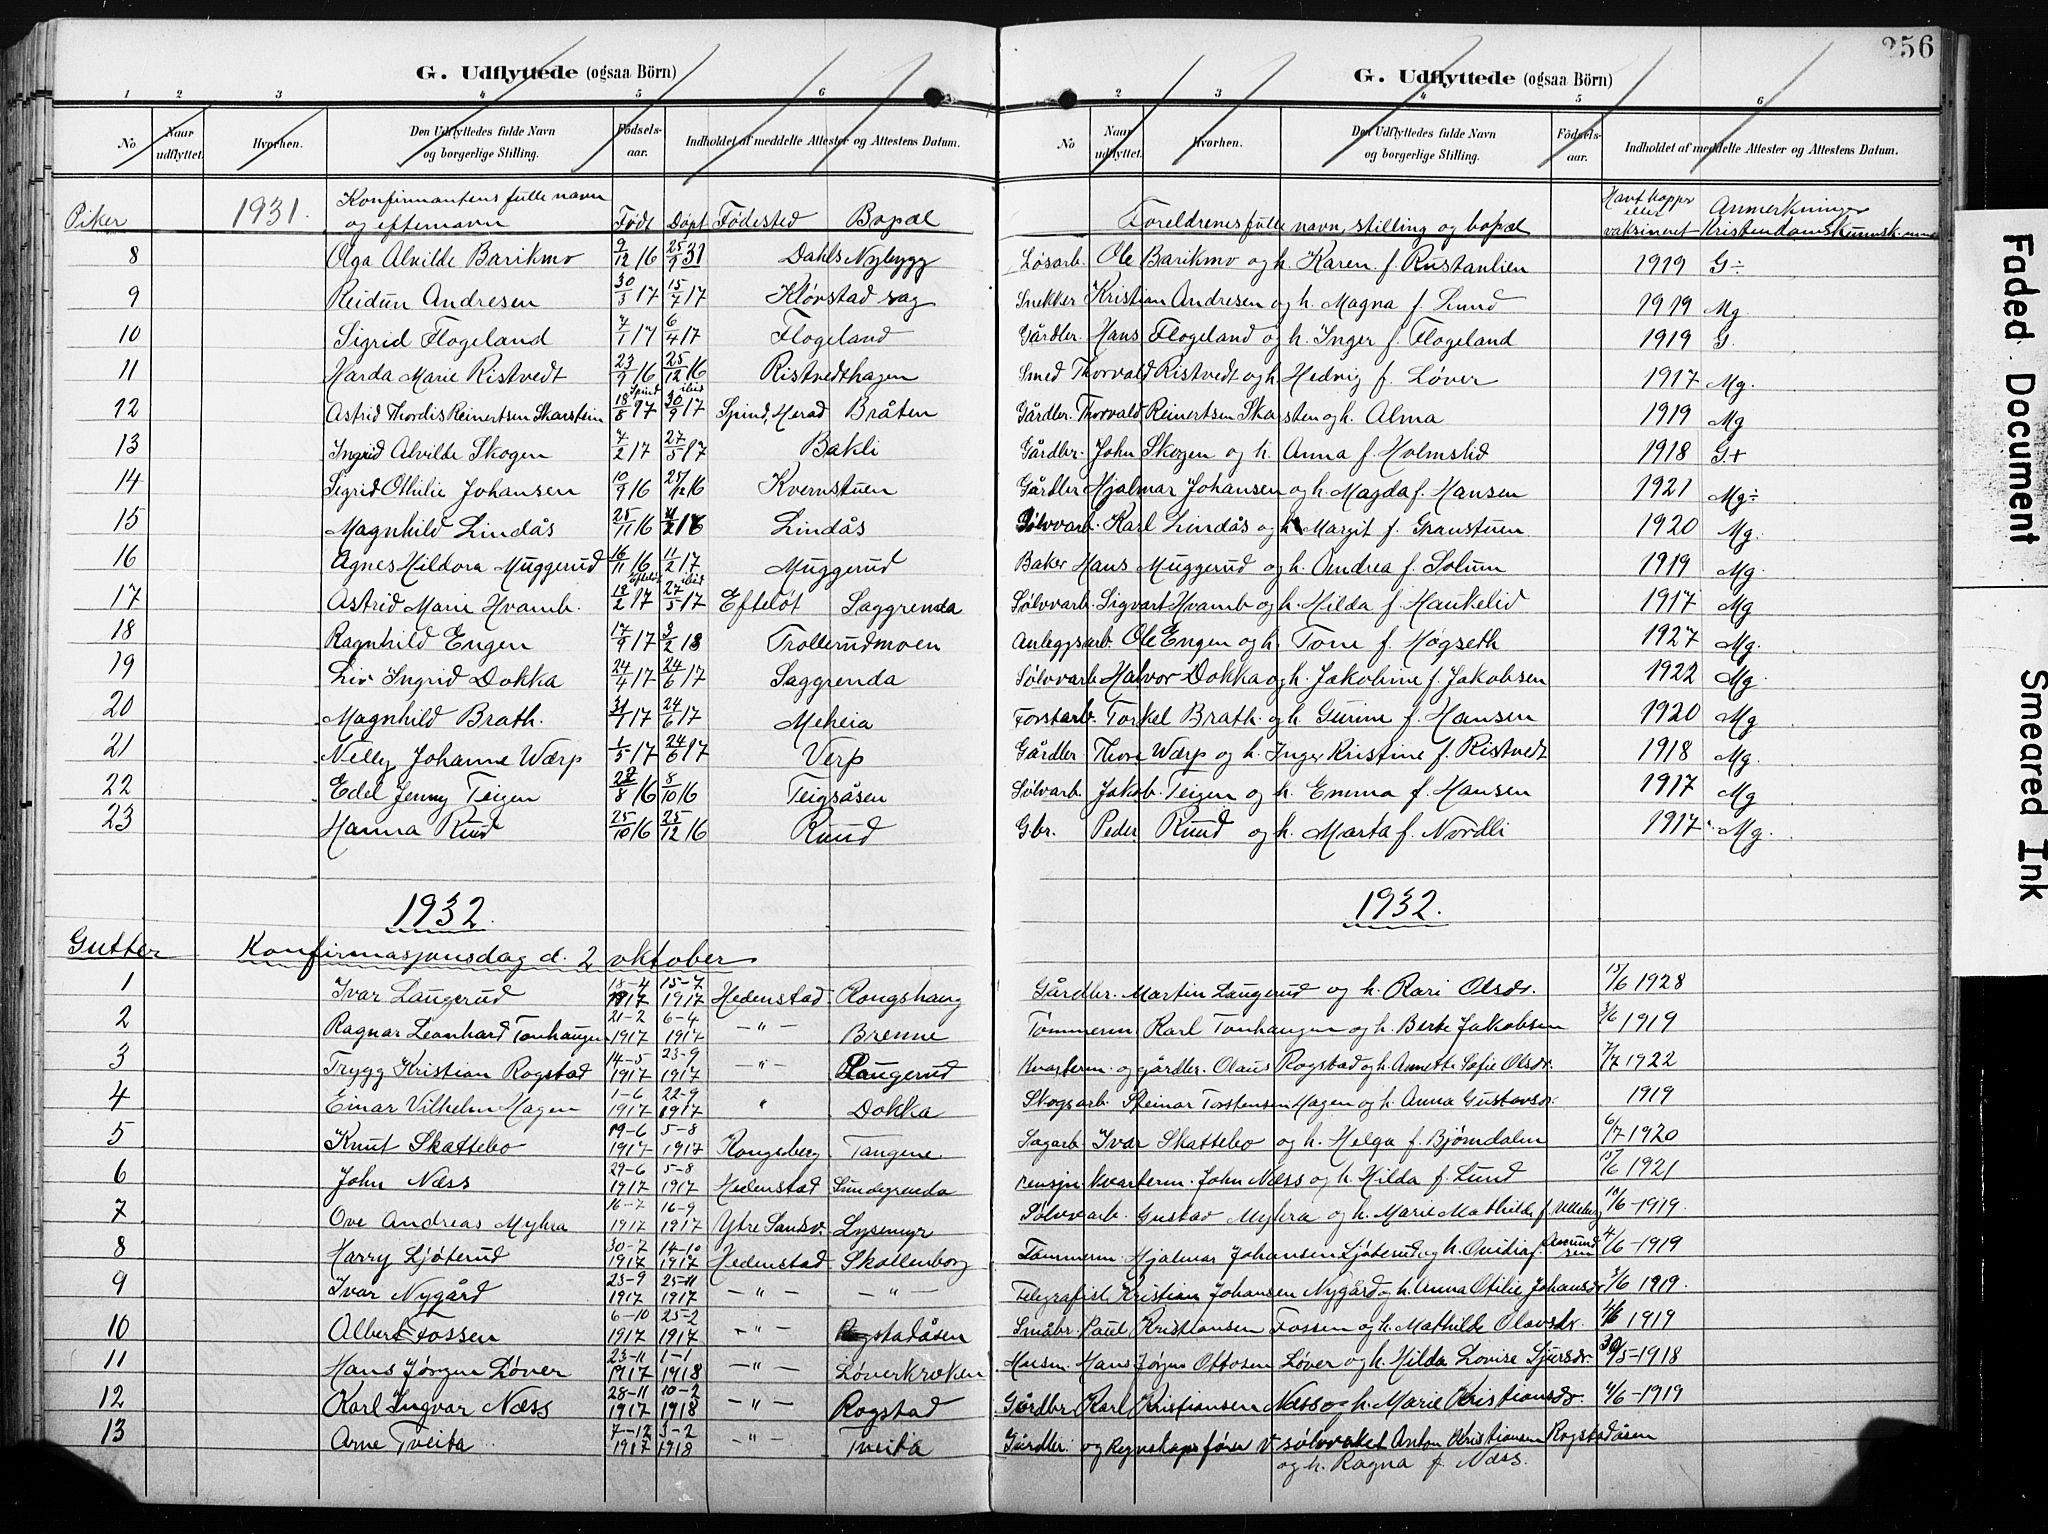 G. Udflyttede (ogsaa Börn)
1 2 3 4 5 6
No Naar udflyttet. Hvorhen. Den Udflyttedes fulde Navn og borgerlige Stilling. Födsels-aar. Indholdet af meddelte Attester og Attestens Datum.
Piker 1931. Konfirmantens fulle navn og efternavn Født Døpt Fødested Bopæl
8 Olga Alvilde Barikmo 9/12 16 25/9 31 Dahls Nybygg
9 Reidun Andresen 30/3 17 15/7 17 Klørstad sag
10 Sigrid Flogeland 7/1 17 6/4 17 Flogeland
11 Harda Marie Ristvedt 23/9 16 25/12 16 Ristvedthagen
12 Astrid Thordis Reinertsen Skarstein 18/8 17 Spind 30/9 17 ibid Spind, Herad Bråten
13 Ingrid Alvilde Skogen 7/2 17 27/5 17 Bakli
14 Sigrid Othilie Johansen 10/9 16 25/12 16 Kvernstuen
15 Magnhild Lindås 25/11 16 Lindås
16 Agnes Hildora Muggerud 16/11 16 11/2 17 Muggerud
17 Astrid Marie Hvamb. 18/2 17 Efteløt 27/5 17 ibid Efteløt Saggrenda
18 Ragnhild Engen 17/9 17 3/2 18 Trollerudmoen
19 Liv Ingrid Dokka 24/4 17 24/6 17 Saggrenda
20 Magnhild Brath. 31/1 17 24/6 17 Meheia
21 Nelly Johanne Wærp 1/5 17 24/6 17 Verp
22 Edel Jenny Teigen 28/8 16 8/10 16 Teigsåsen
23 Hanna Ruud 25/10 16 25/12 16 Ruud
1932.
Gutter Konfirmasjonsdag d. 2 oktober
1 Ivar Laugerud 18-4 1917 15-7 1917 Hedenstad Rongshaug
2 Ragnar Leonhard Tonhaugen 21-2 1917 6-4 1917 -"- Brenne
3 Trygg Kristian Rogstad 14-5 1917 23-9 1917 -"- Laugerud
4 Einar Vilhelm Hagen 1-6 1917 22-9 1917 " Dokka
5 Knut Skattebo 19-6 1917 5-8 1917 Kongsberg Tangene
6 John Næss 29-6 1917 5-8 1917 Hedenstad Sundegrenda
7 Ove Andreas Myhra 16-7 1917 16-9 1917 Ytre Sandsv. Lysemyr
8 Harry Ljøterud 30-7 1917 14-10 1917 Hedenstad Skollenborg
9 Ivar Nygård 23-9 1917 25-11 1917 -"- -"-
10 Albert Fossen 6-10 1917 25-2 1917 -"- Rogstadåsen
11 Hans Jørgen Løver 23-11 1917 1-1 1918 -"- Løverkroken
12 Karl Ingvar Næss 28-11 1917 10-2 1918 -"- Rogstad
13 Arne Tveita 7-12 1917 3-2 1918 -"- Tveita
256
G. Udflyttede (ogsaa Börn)
2 3 4 5 6
No Naar udflyttet. Hvorhen. Den Udflyttedes fulde Navn og borgerlige Stilling. Födsels-aar. Indholdet af meddelte Attester og Attestens Datum.
Foreldrenes fulle navn, stilling og bopæl Havt kopper eller vaksinert Anmerkninger Kristendomskunnsk.
Løsarb. Ole Barikmo og h. Karen f. Rustanlien 1919 G÷
Snekker Kristian Andresen og h. Magna f. Lund 1919 Mg.
Gårdbr. Hans Flogeland og h. Inger f. Flogeland 1919 G.
Smed Thorvald Ristvedt og h. Hedvig f. Løver 1917 Mg.
Gårdbr. Thorvald Reinertsen Skarsten og h. Alma 1919 Mg
Gårdbr. John Skogen og h. Anna f. Holmslid 1918 G+
Gårdbr Hjalmar Johansen og h. Magda f. Hansen 1921 Mg÷
Sølvarb. Karl Lindås og h. Margit f. Granstuen 1920 Mg.
Baker Hans Muggerud og h. Andrea f. Solum 1919 Mg.
Sølvarb. Sigvart Hvamb og h. Hilda f. Haukelid 1917 Mg
Anleggsarb. Ole Engen og h. Tone f. Høgseth 1927 Mg.
Sølvarb Halvor Dokka og h. Jakobine f. Jakobsen 1922 Mg.
Forstarb. Torkel Brath. og h. Gurine f. Hansen 1920 Mg
Gårdbr. Thore Wærp og h. Inger Kristine f. Ristvedt 1918 Mg.
Sølvarb. Jakob Teigen og h. Emma f. Hansen 1917 Mg
Gbr. Peder Ruud og h. Marta f. Nordli 1917 Mg.
1932.
Gårdbr. Martin Laugerud og h. Kari Olsdr. 15/6 1928
Tømmerm. Karl Tonhaugen og h. Berte Jakobsen 3/6 1919
Kvarterm. og gårdbr. Olaus Rogstad og h. Annette Sofie Olsdr. 7/7 1922
Skogsarb. Steinar Torstensen Hagen og h. Anna Gustavsdr. 1919
Sagarb. Ivar Skattebo og h. Helga f. Bjørndalen 6/7 1920
Pensjn. kvarterm. John Næss og h. Hilda f. Lund 15/6 1921
Sølvarb. Gustav Myhra og h. Marie Mathilde f. Ulleberg 10/6-1919.
Tømmerm. Hjalmar Johansen Ljøterud og h. Ovidia f. Amundsen 4/6-1919
Telegrafist Kristian Johansen Nygård og h. Anna Otilie Johansdr. 3/6 1919.
Småbr. Paul Kristiansen Fossen og h. Mathilde Olavsdr. 4/6 1919
Husm. Hans Jørgen Ottosen Løver og h. Hilda Lovise Sjursdr. 30/5-1918
Gårdbr. Karl Kristiansen Næss og h. Marie Kristiansdr. 4/6-1919
Gårdbr. og Regnskapsfører v. sølvverket Anton Kristiansen Rogstadåsen
og h. Ragna f. Næss.
Faded Document
Smeared Ink